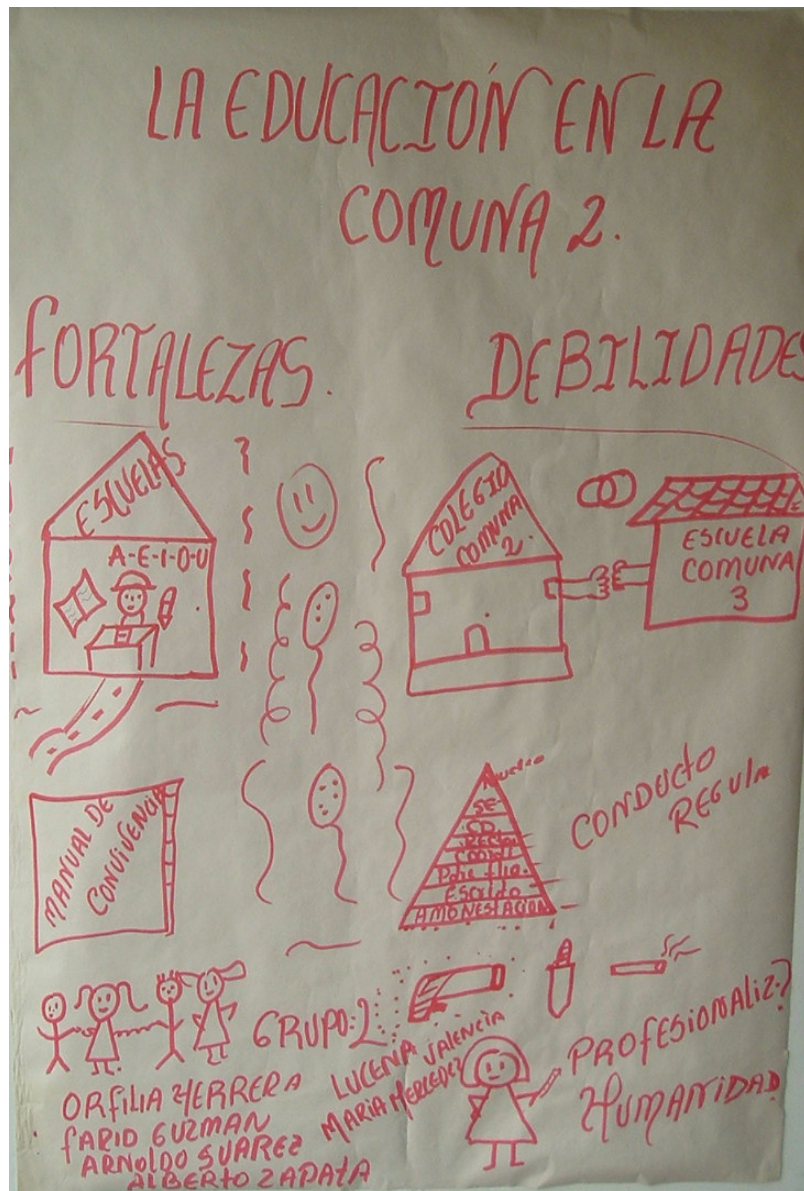 LA EDUCACIÓN EN LA
COMUNA 2.
FORTALEZAS.
DEBILIDADES
ESCUELAS
A-E-I-O-U
COLEGIO
COMUNA
2.
ESCUELA
COMUNA
3
MANUAL DE
CONVIVENCIA
SE
CD
RECTOR
COORDI
Escrido
AMONESTACION
CONDUCTO
REGULA
GRUPO:2
ORFILIA HERRERA
FARID GUZMAN
ARNOLDO SUAREZ
ALBERTO ZAPATA
LUCENA VALENCIA
MARIA MERCEDEZ
PROFESIONALIZ.?
HUMANIDAD